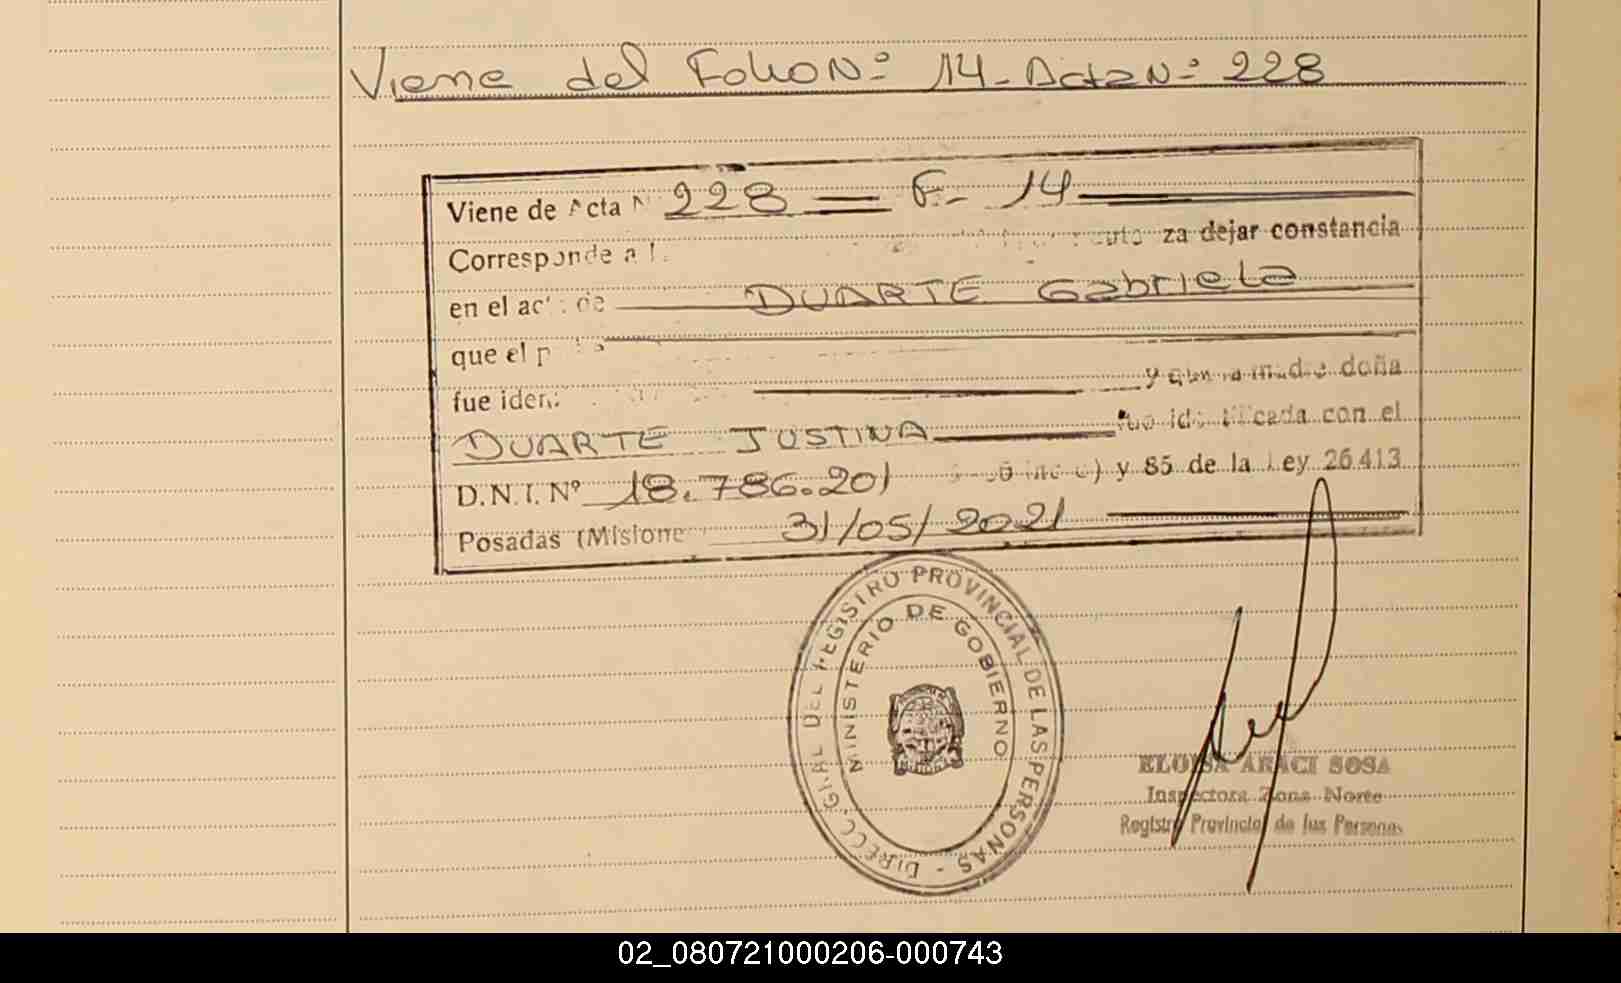 Viene del Folio Nº 14 - Acta Nº 228
Viene de Acta N 228 F. 14
Corresponde a l za dejar constancia
en el ac de DUARTE Gabriela
que el p
fue iden y que la madre doña
DUARTE JUSTINA cada con el
D.N.I. Nº 18.786.201 y 85 de la Ley 26.413
Posadas (Misione 31/05/2021
DIRECC. GRAL. DEL REGISTRO PROVINCIAL DE LAS PERSONAS -
MINISTERIO DE GOBIERNO
ELOISA ARACI SOSA
Inspectora Zona Norte
Registro Provincial de las Personas
02_080721000206-000743